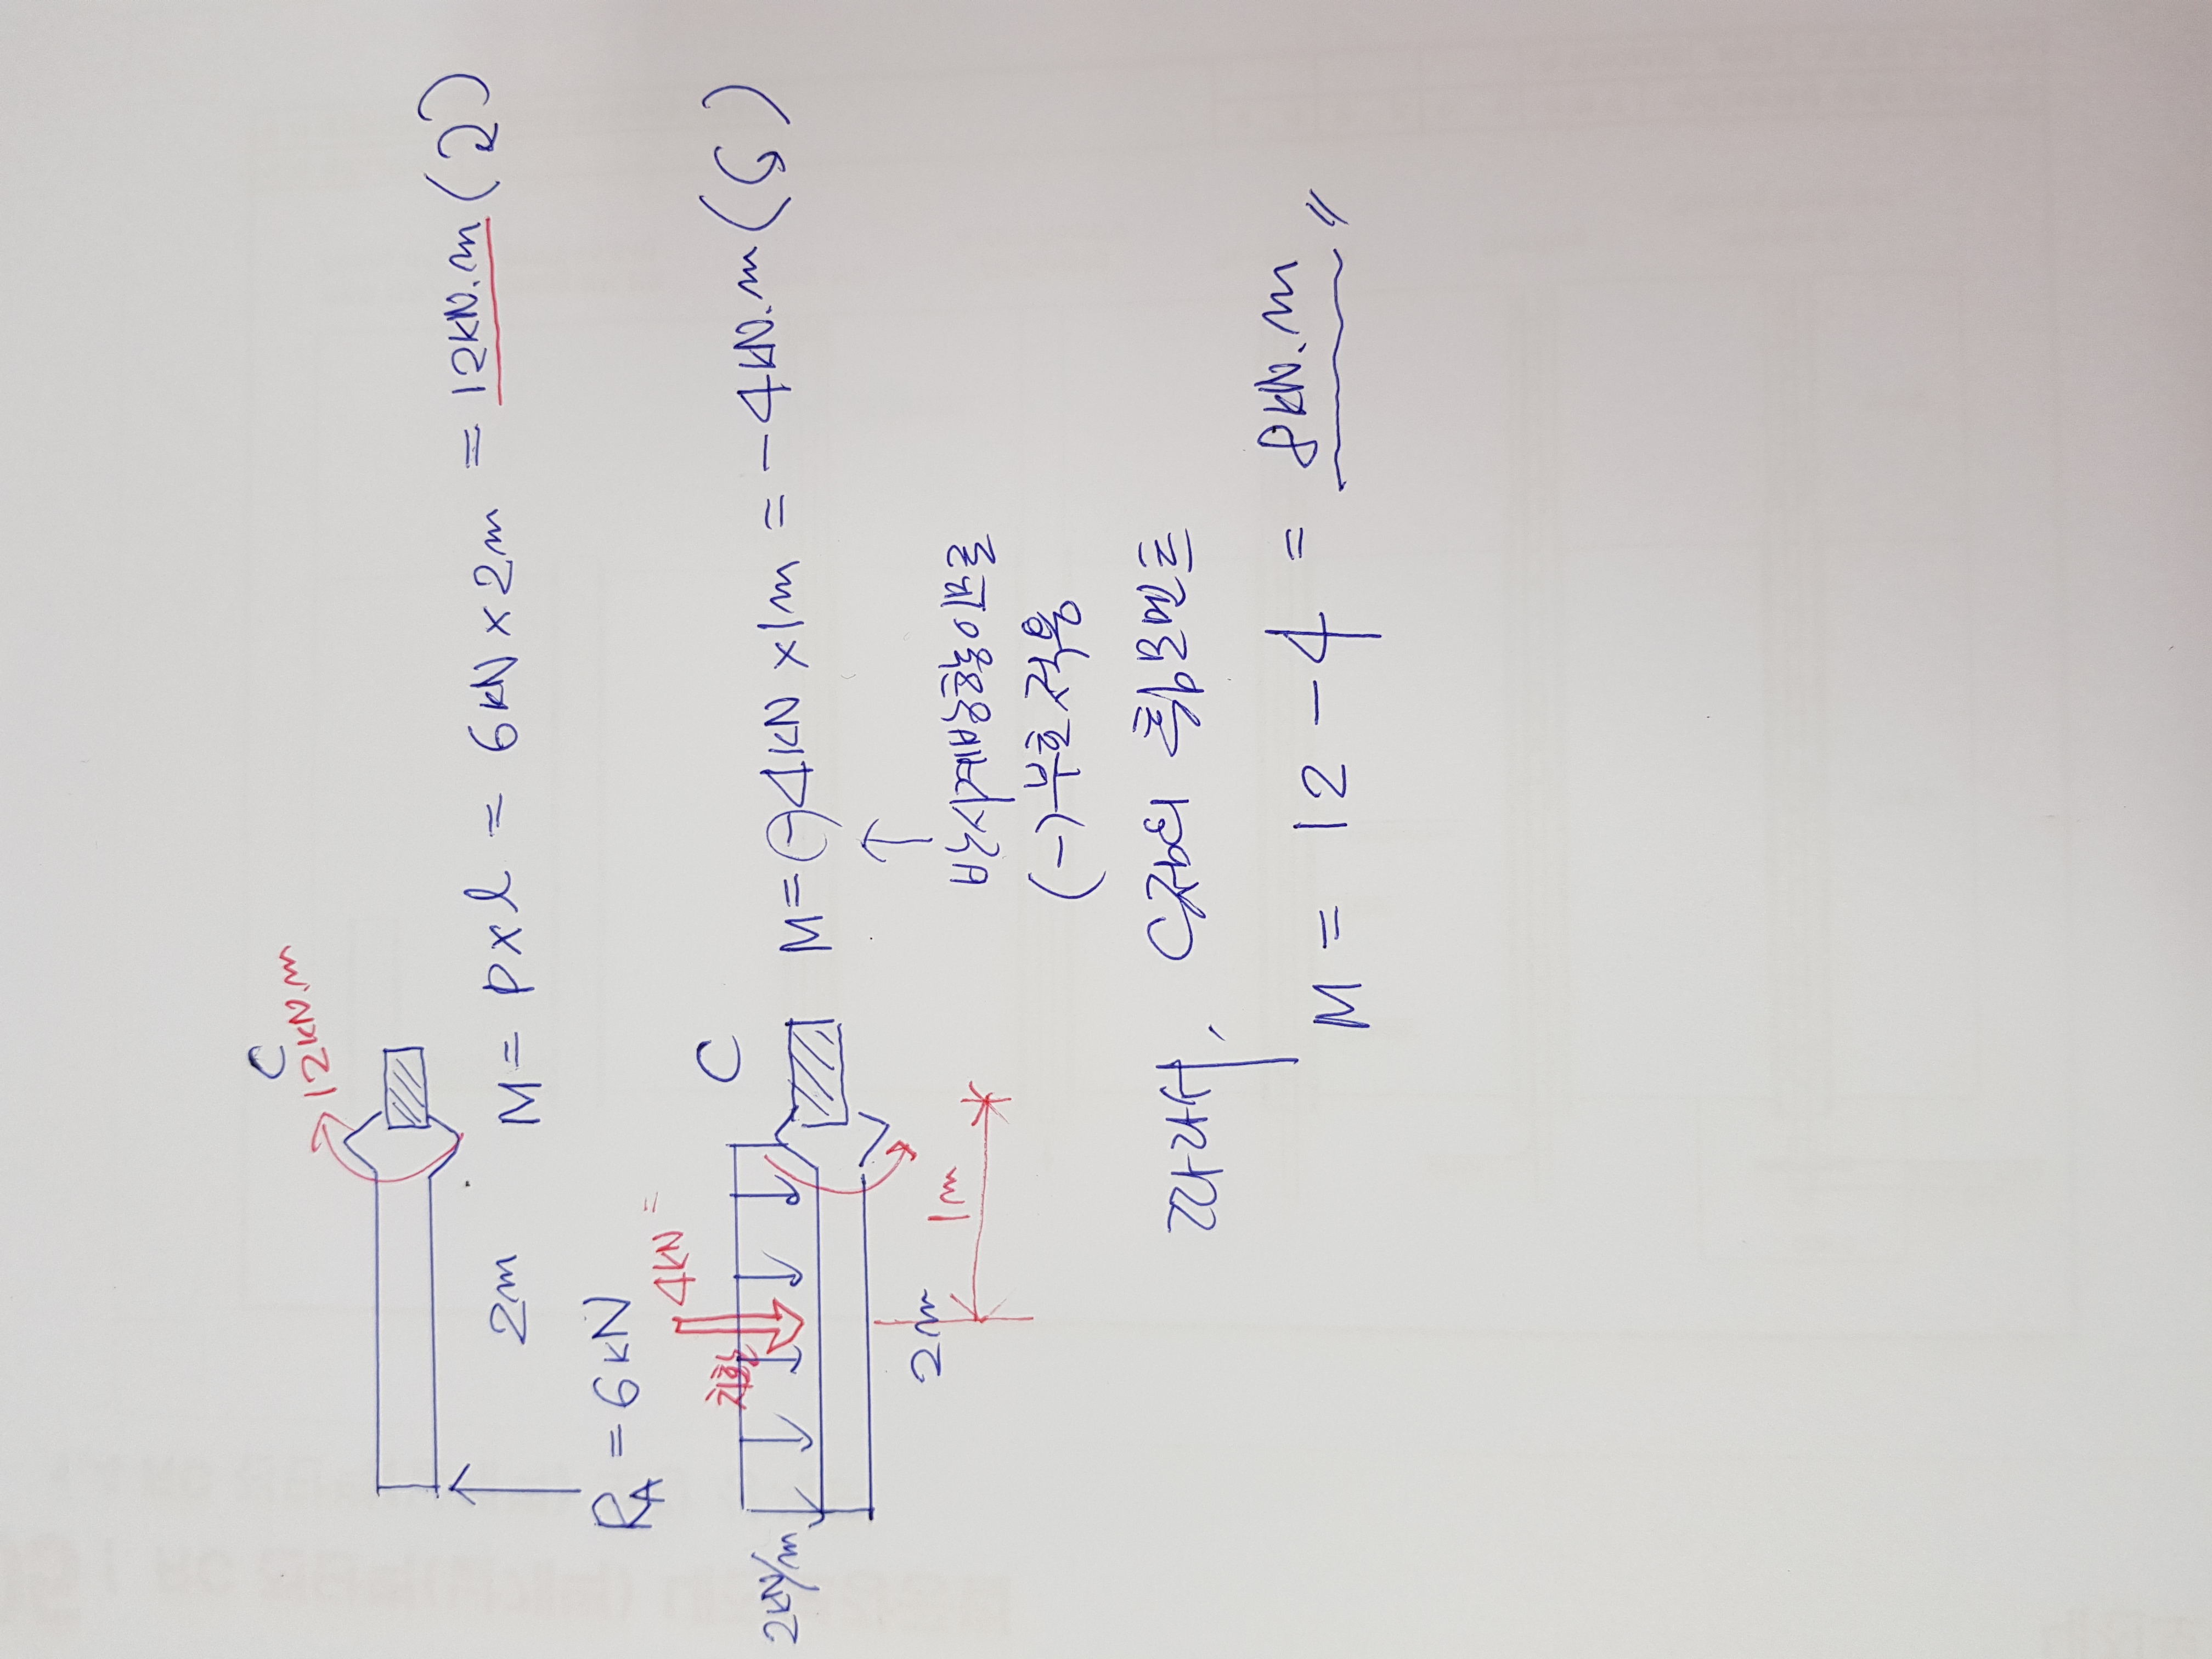 C
12kN.m
2m
RA = 6kN
M = P x l = 6kN x 2m = 12kN.m ( )
4kN
C
2kN/m
2m
1m
M = (-) 4kN x 1m = -4kN.m ( )
↑
반시계방향이므로
(-)부호 적용
따라서, C점의 휨모멘트
M = 12 - 4 = 8kN.m 〃